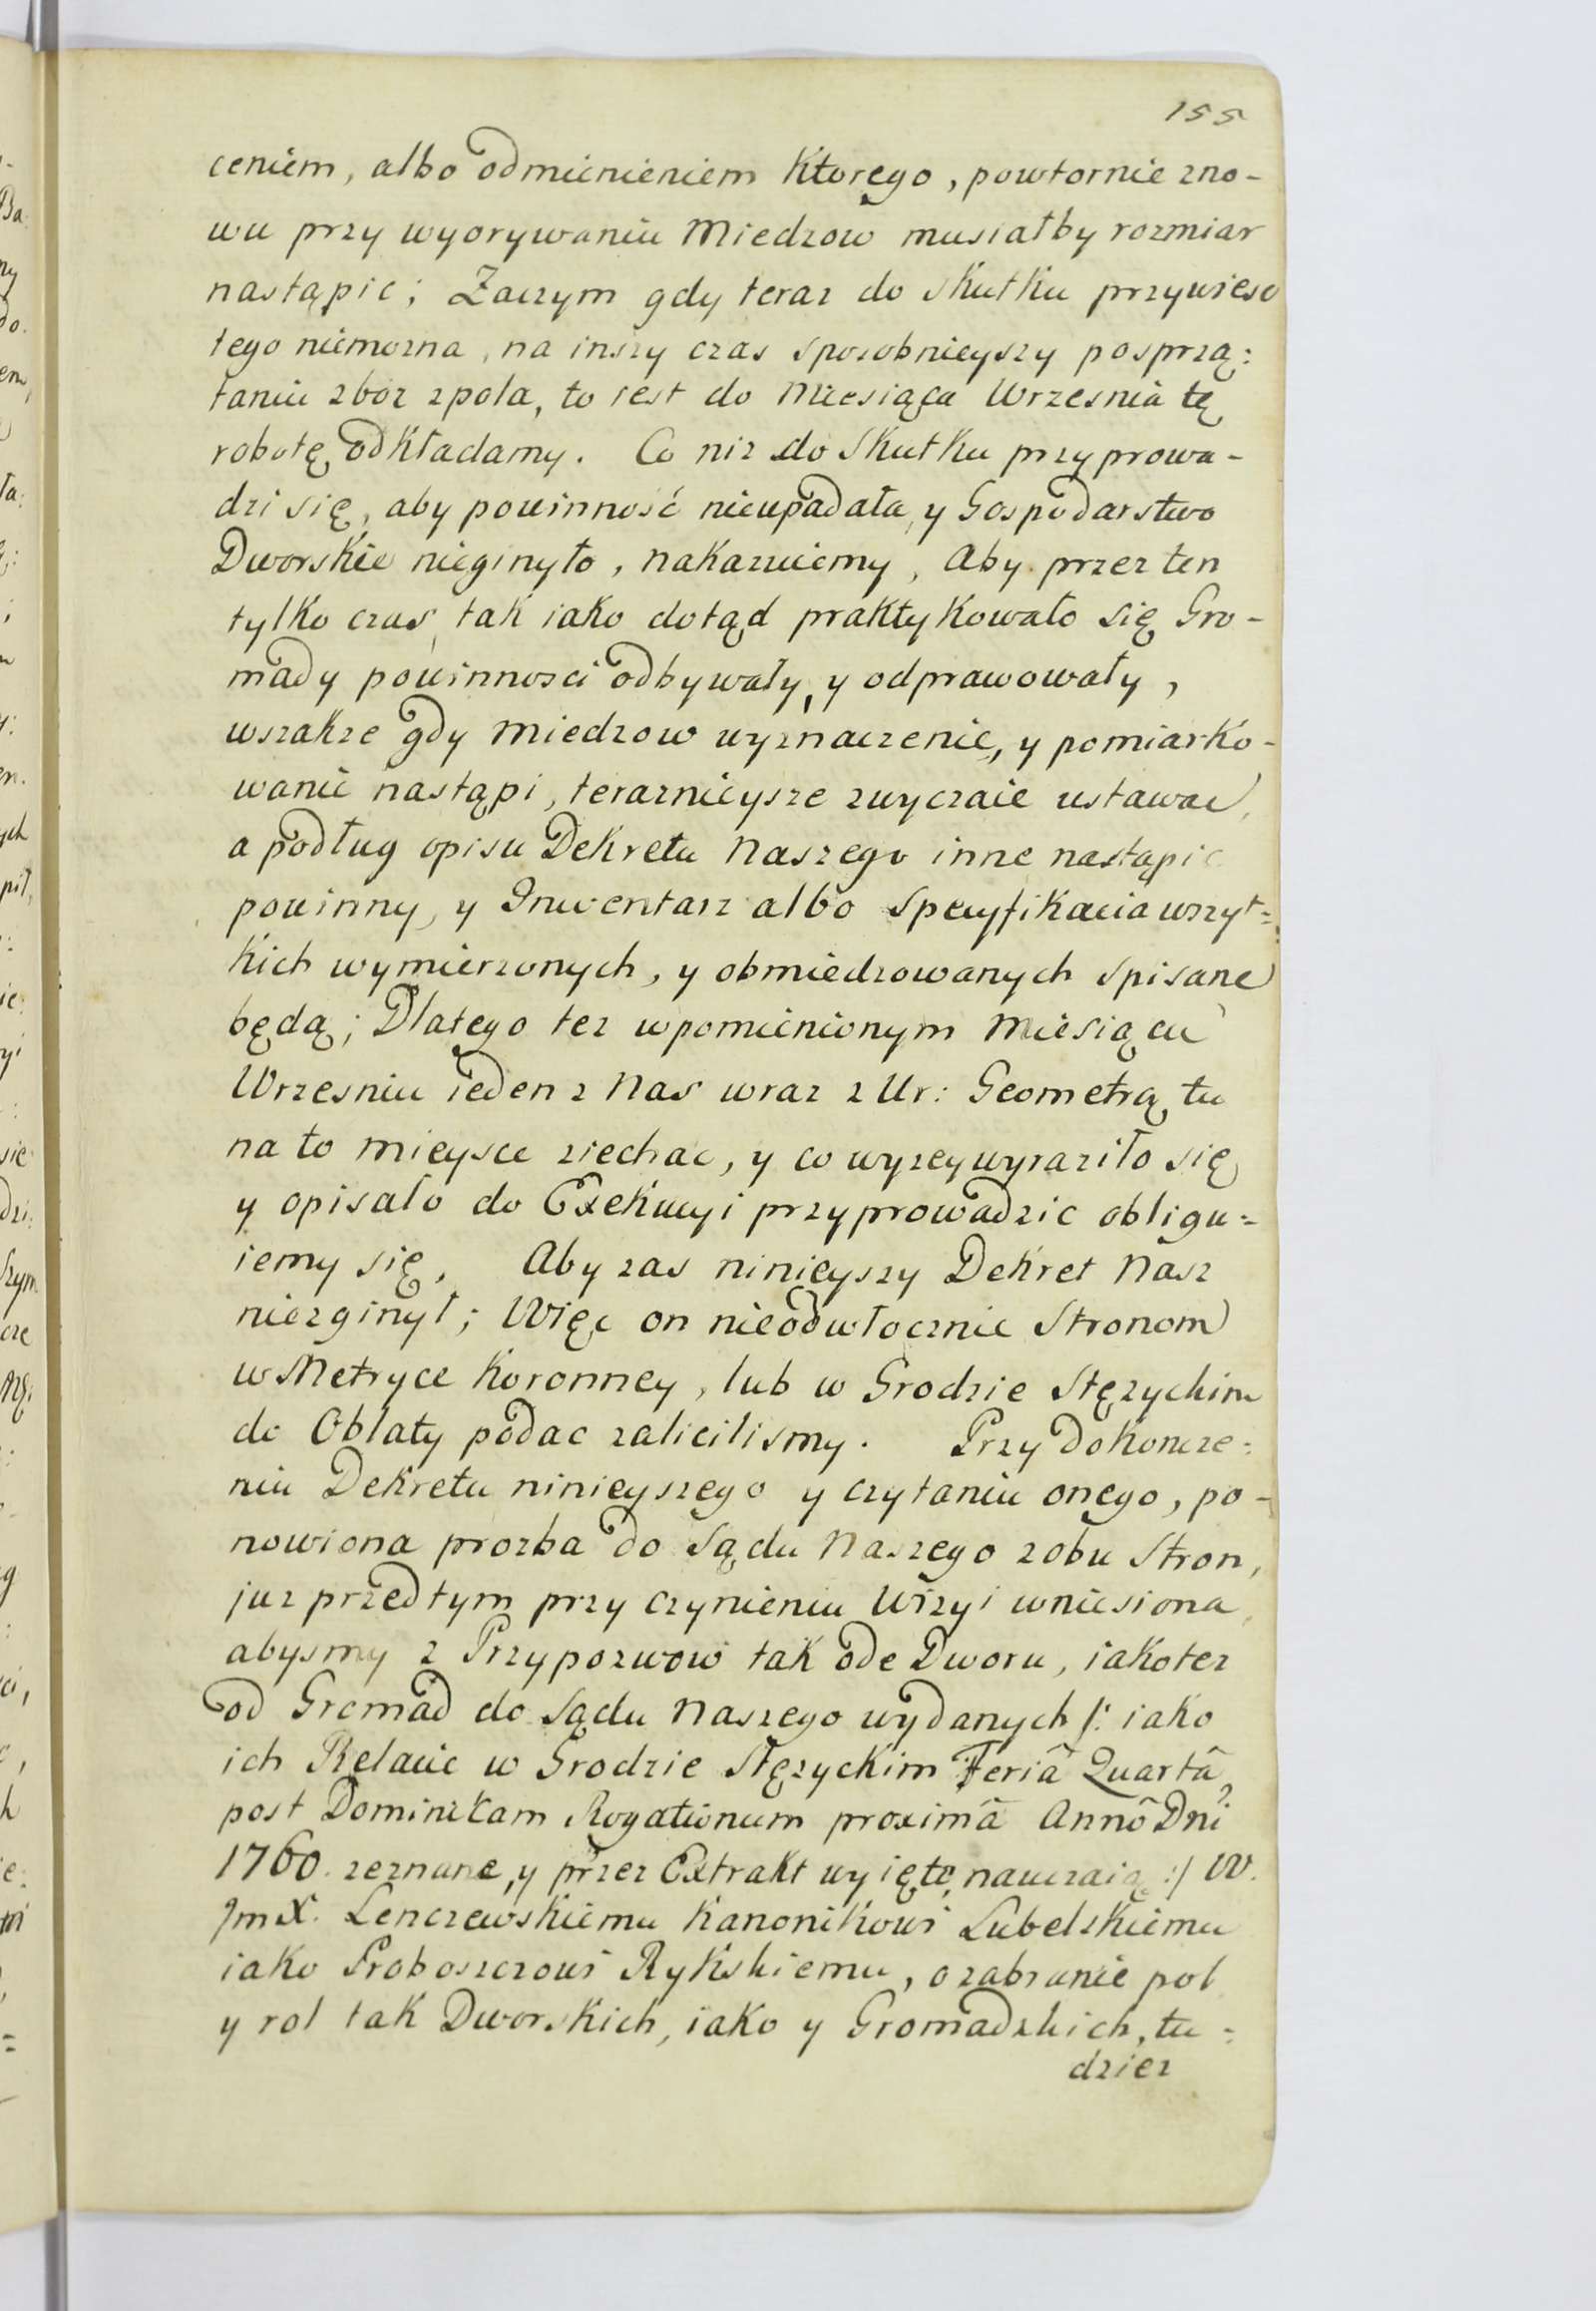 155
ceniem, albo odmienieniem ktorego, powtornie zno-
wu przy wyorywaniu Miedzow musiałby rozmiar
nastąpic; Zaczym gdy teraz do skutku przywiesc
tego niemozna, na inszy czas sposobnieyszy posprzą:
taniu zboz zpola, to iest do Miesiąca Wrzesnia tę
robotę odkładamy. Co niz do skutku przyprowa-
dzi się, aby powinność nieupadała, y Gospodarstwo
Dworskie nieginyło, nakazuiemy, Aby przez ten
tylko czas, tak iako dotąd praktykowało się Gro-
mady powinnosci odbywały, y odprawowały,
wszakze gdy miedzow wyznaczenie, y pomiarko-
wanie nastąpi, teraznieysze zwyczaie ustawac,
a podług opisu Dekretu Naszego inne nastąpic
powinny, y Inwentarz albo Specyfikacia wszyt=
kich wymierzonych, y obmiedzowanych spisane
będą; Dlatego tez wpomienionym Miesiącu
Wrzesniu ieden z Nas wraz z Ur: Geometrą tu
na to mieysce ziechac, y co wyzey wyraziło się
y opisało do Exekucyi przyprowadzic obligu=
iemy się. Aby zas ninieyszy Dekret Nasz
niezginył; Więc on nieodwłocznie Stronom
w Metryce Koronney, lub w Grodzie Stęzyckim
do Oblaty podac zalicilismy. Przy Dokoncze=
niu Dekretu ninieyszego y czytaniu onego, po-
nowiona prozba do Sądu Naszego zobu Stron,
juz przedtym przy czynieniu Wizyi wniesiona,
abysmy z Przypozwow tak ode Dworu, iakotez
od Gromad do Sądu Naszego wydanych /: iako
ich Relacie w Grodzie Stęzyckim Feriâ Quartâ,
post Dominicam Rogationum proximâ Annô Dni
1760. zeznane, y przez Extrakt wyięte, nauczaią :/ W.
JmX. Lenczewskiemu Kanonikowi Lubelskiemu
iako Proboszczowi Rykskiemu, o zabranie pol
y rol tak Dworskich, iako y Gromadzkich, tu=
dziez